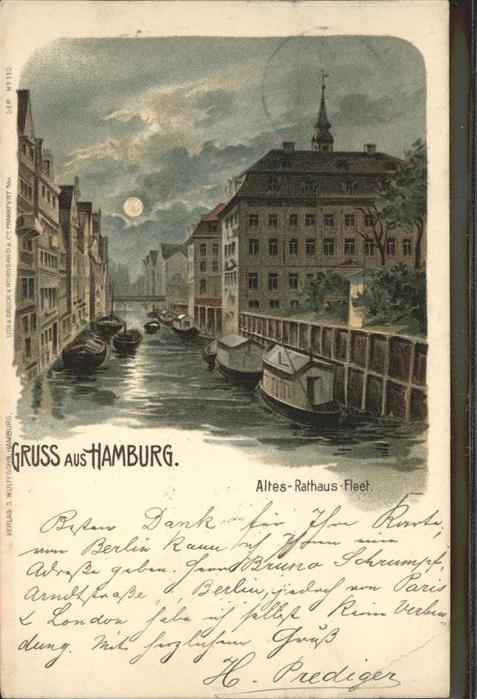 GRUSS AUS HAMBURG.
Altes-Rathaus-Fleet.
Besten Dank für Ihre Karte,
von Berlin kann ich Ihnen eine
Adreße geben. Herrn Bruno Schrumpf,
Arndtstraße , Berlin, jedoch von Paris
& London habe ich selbst keine Verbin
dung. Mit herzlichem Gruß
H. Prediger
VERLAG S. WULFFSOHN, HAMBURG.
LITH. & DRUCK V. KORNSAND & Cº, FRANKFURT a/M.
DEP. Nº 110